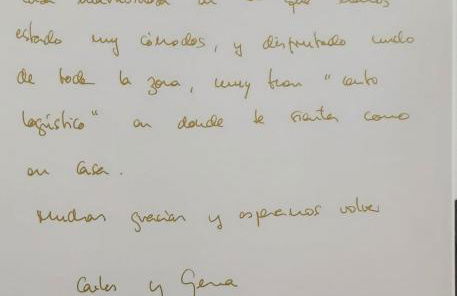 casa maravillosa en la que hemos
estado muy cómodos, y disfrutado mucho
de toda la zona, muy buen "centro
logístico" en donde te sientes como
en casa.
Muchas gracias y esperamos volver
Carles y Gema